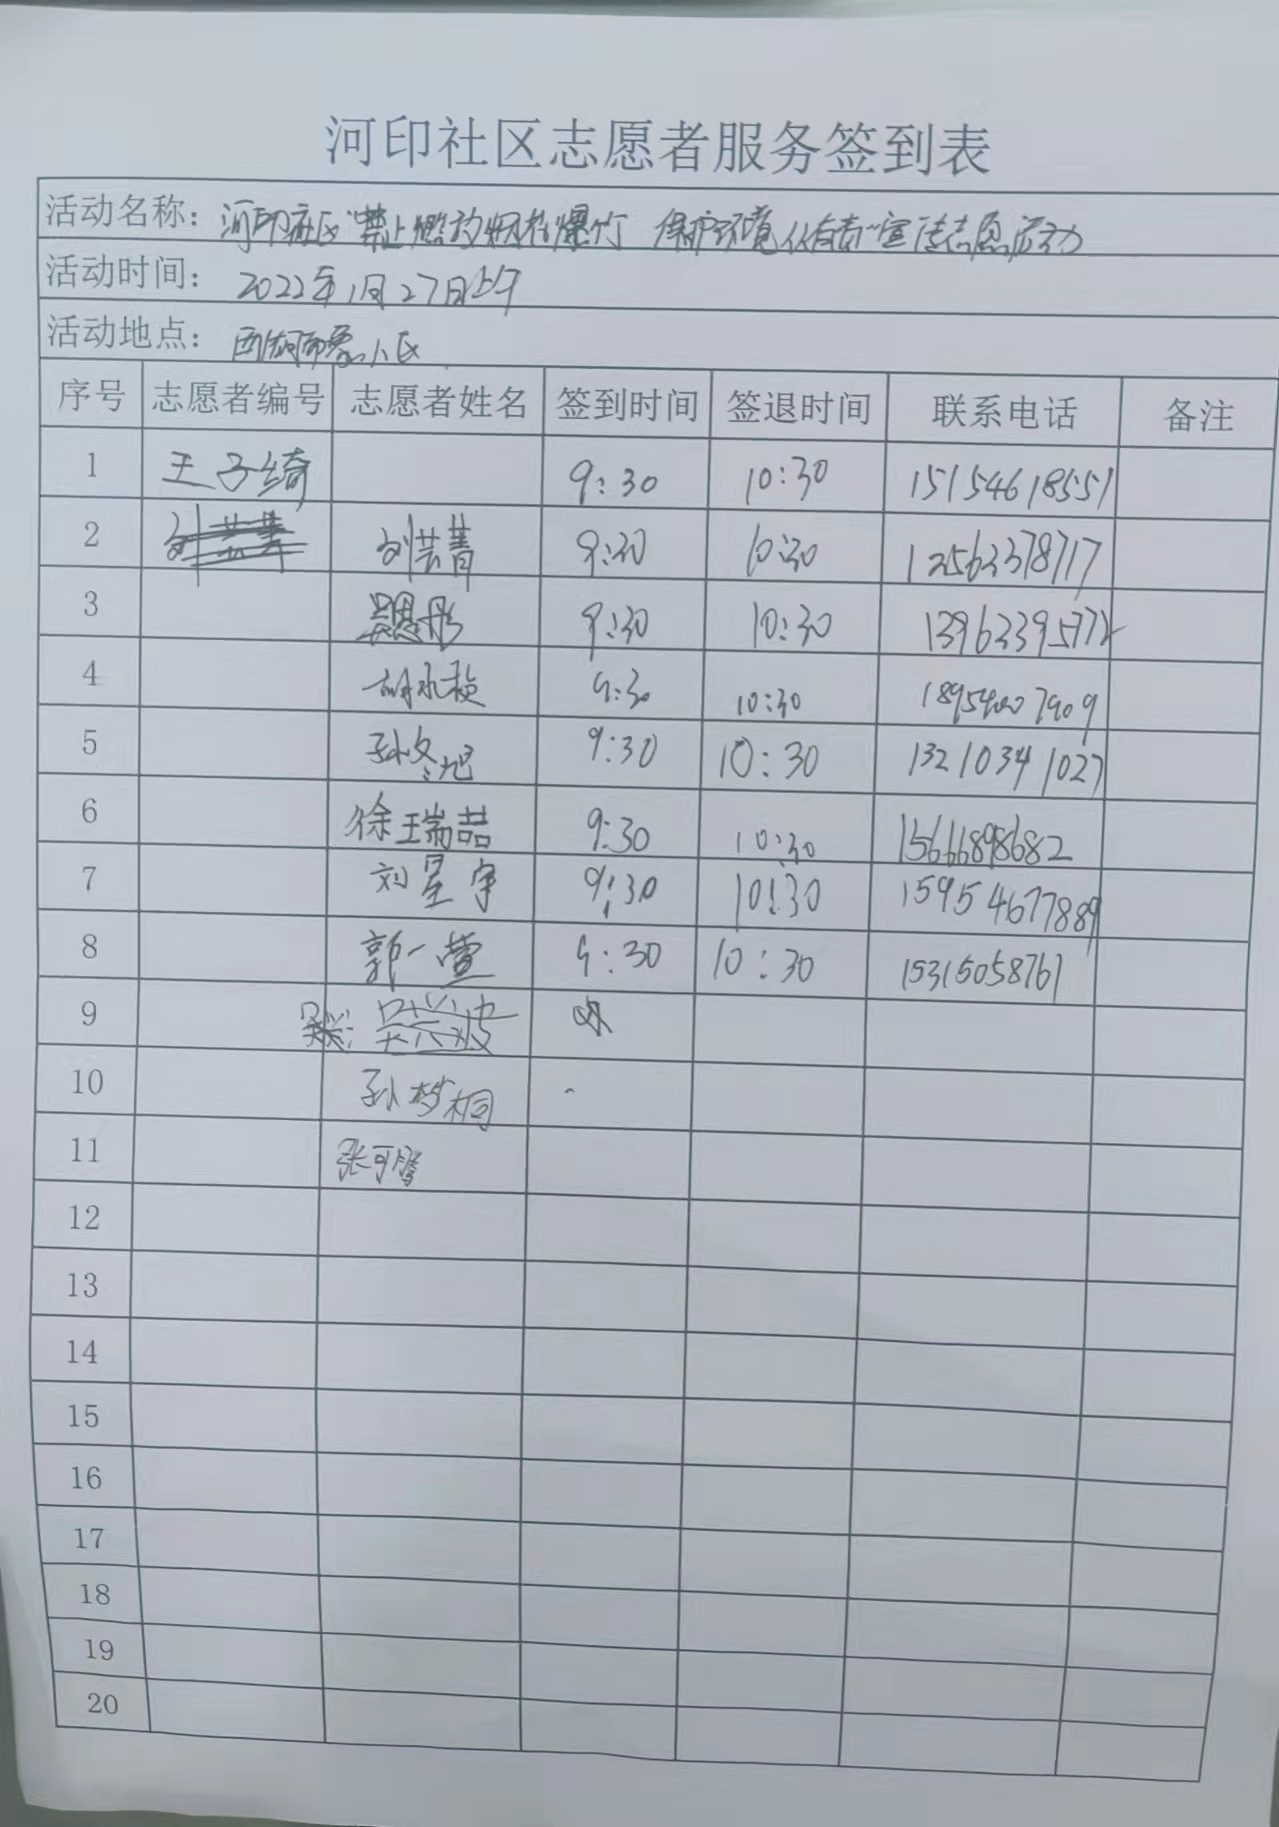 河印社区志愿者服务签到表
活动名称：河印社区“禁止燃放烟花爆竹 保护环境人人有责”宣传志愿活动
活动时间：2022年1月27日上午
活动地点：西湖印象小区
序号 志愿者编号 志愿者姓名 签到时间 签退时间 联系电话 备注
1 王子绮 9:30 10:30 15154618551
2 刘芸菁 刘芸菁 9:30 10:30 12562378717
3 吴思彤 9:30 10:30 13963395772
4 胡永稹 9:30 10:30 18954007909
5 孙冬旭 9:30 10:30 13210341027
6 徐瑞喆 9:30 10:30 15666898682
7 刘星宇 9:30 10:30 15954677889
8 郭一萱 9:30 10:30 15315058761
9
10 孙梦桐
11 张可腾
12
13
14
15
16
17
18
19
20